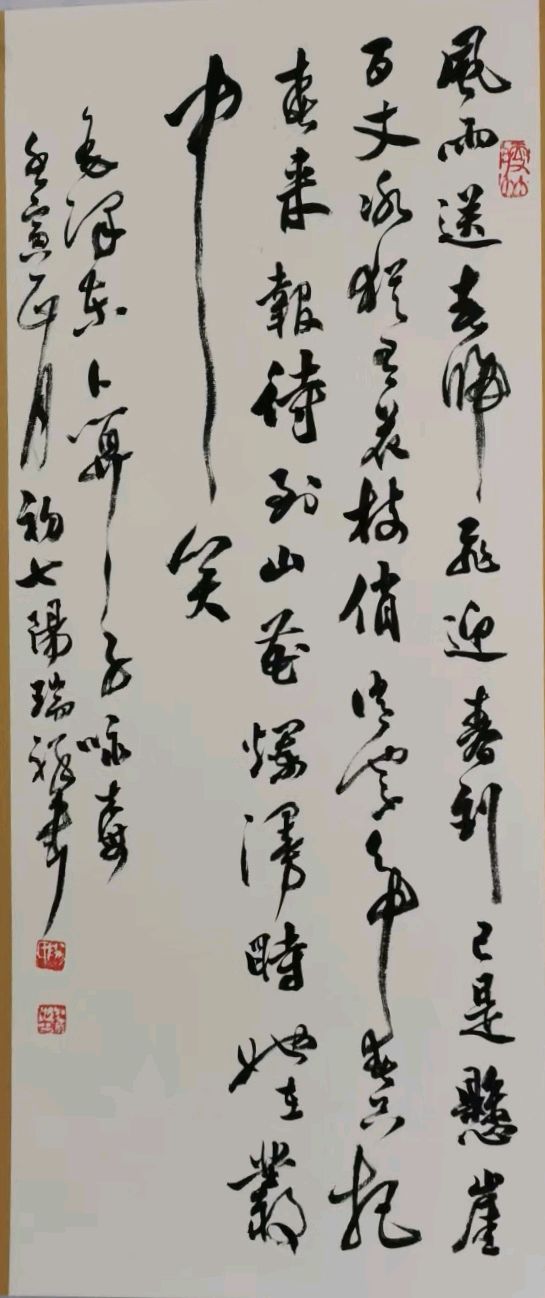 風雨送春歸飛迎春到已是懸崖
百丈冰猶有花枝俏俏也不爭春只把
春來報待到山花爛漫時她在叢
中笑
毛澤東卜算子咏梅
壬寅正月初七陽瑞書